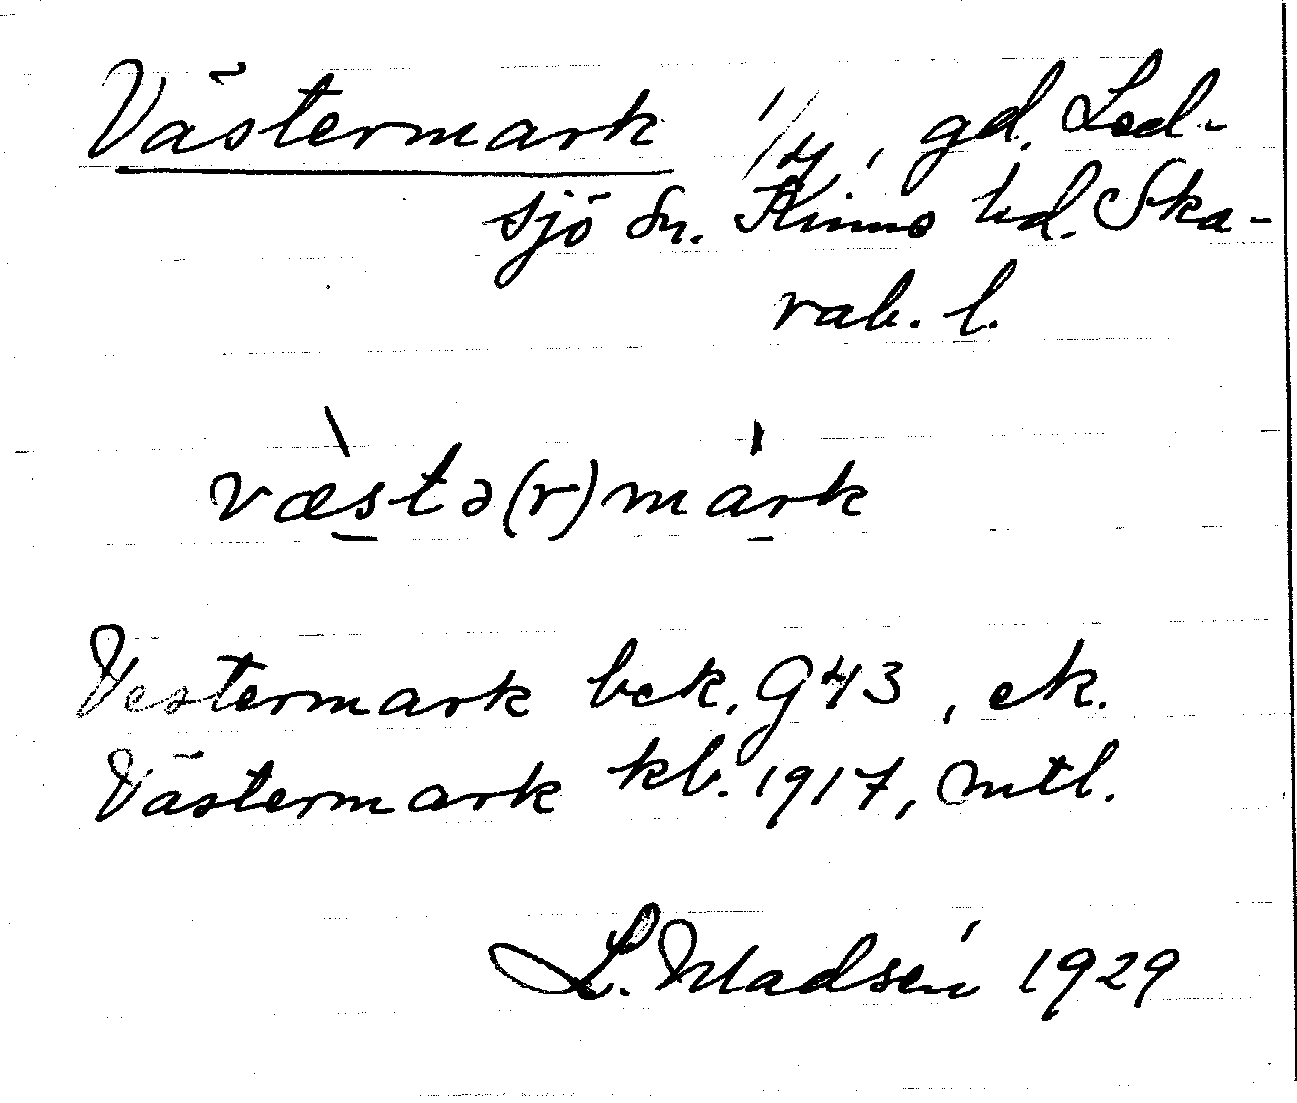 Västermark 1/4, gd. Led-
sjö sn. Kinne hd. Ska-
rab. l.
væstə(r)mark
Vestermark bek. G43, ek.
Västermark kb. 1917, mtl.
L. Madsén 1929